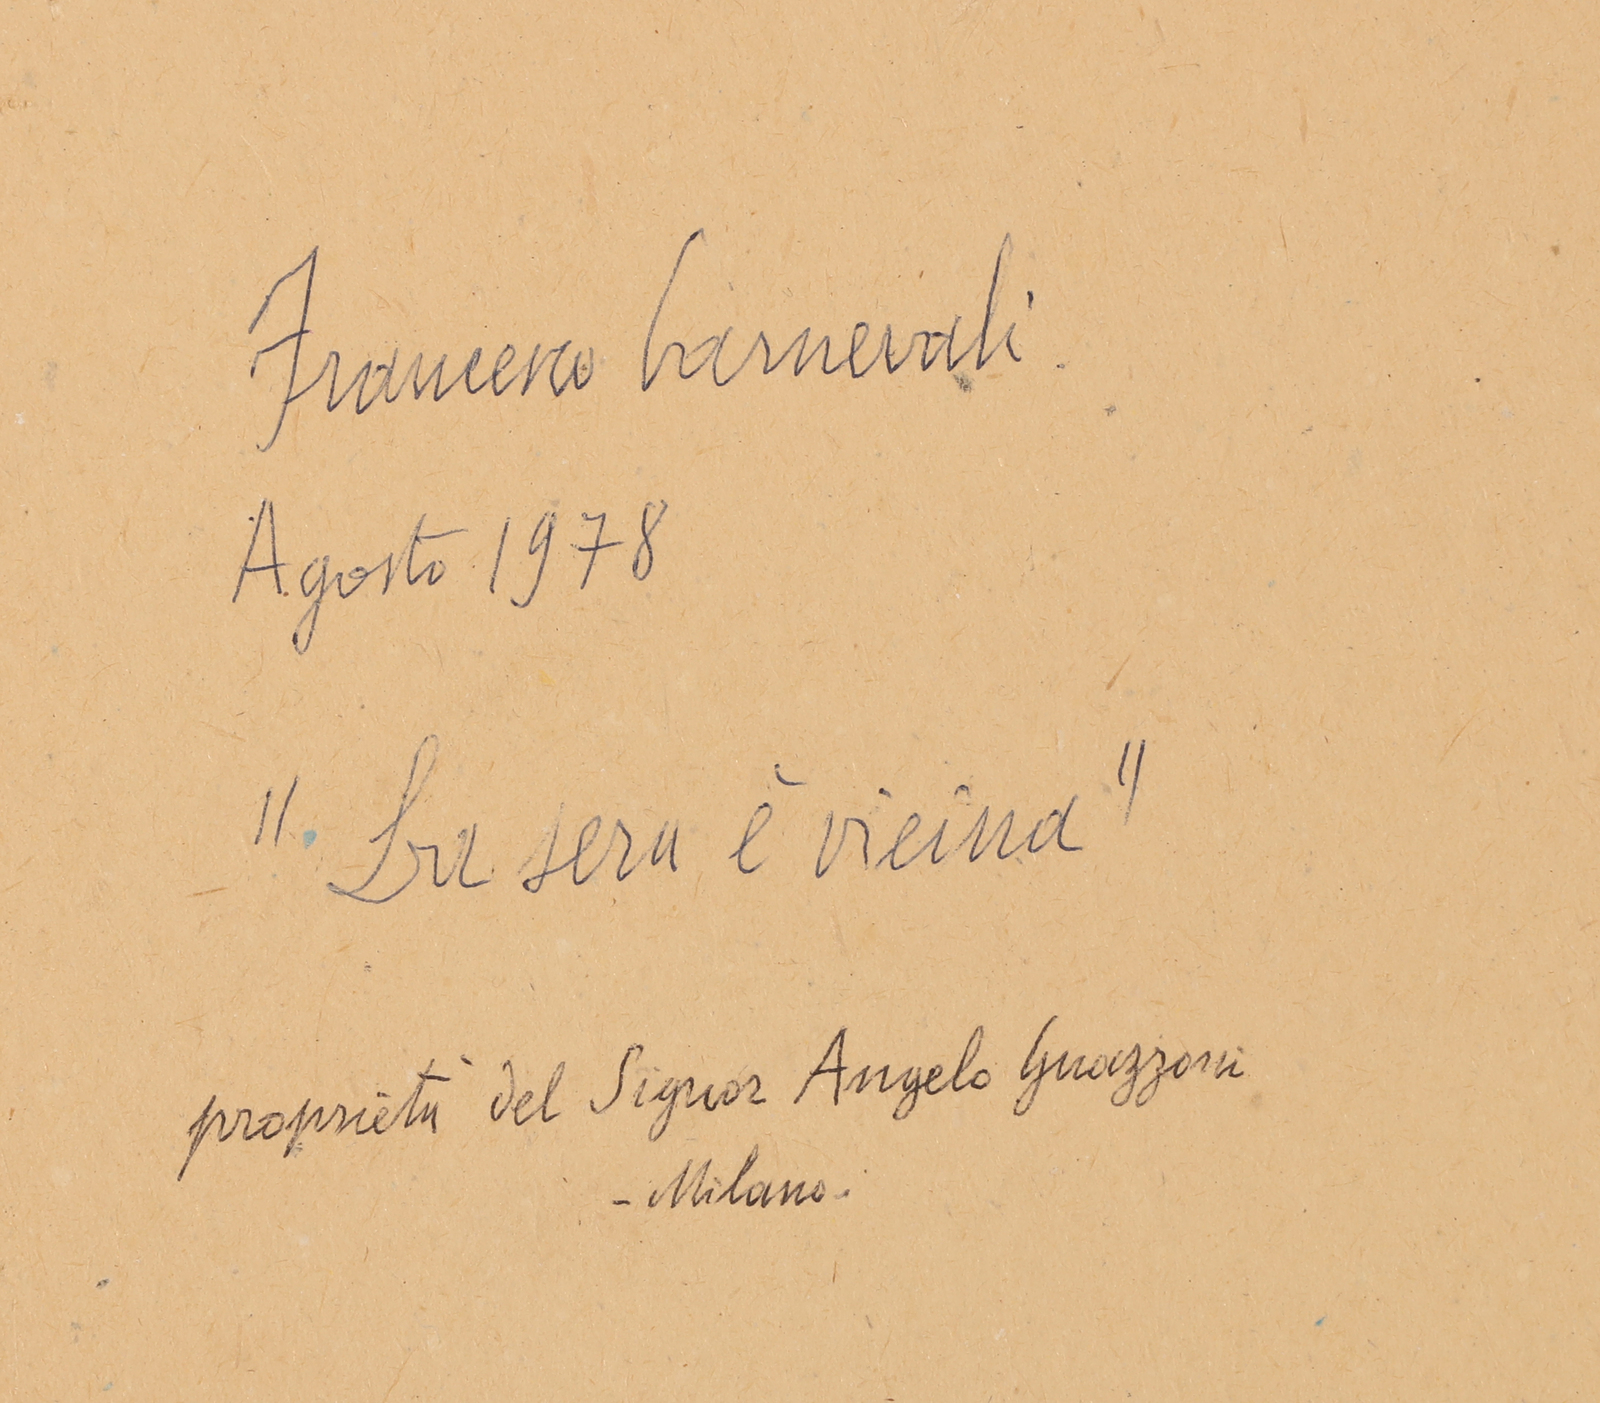 Francesco Carnevali.
Agosto 1978
"La sera è vicina"
proprietà del Signor Angelo Guazzoni
- Milano -